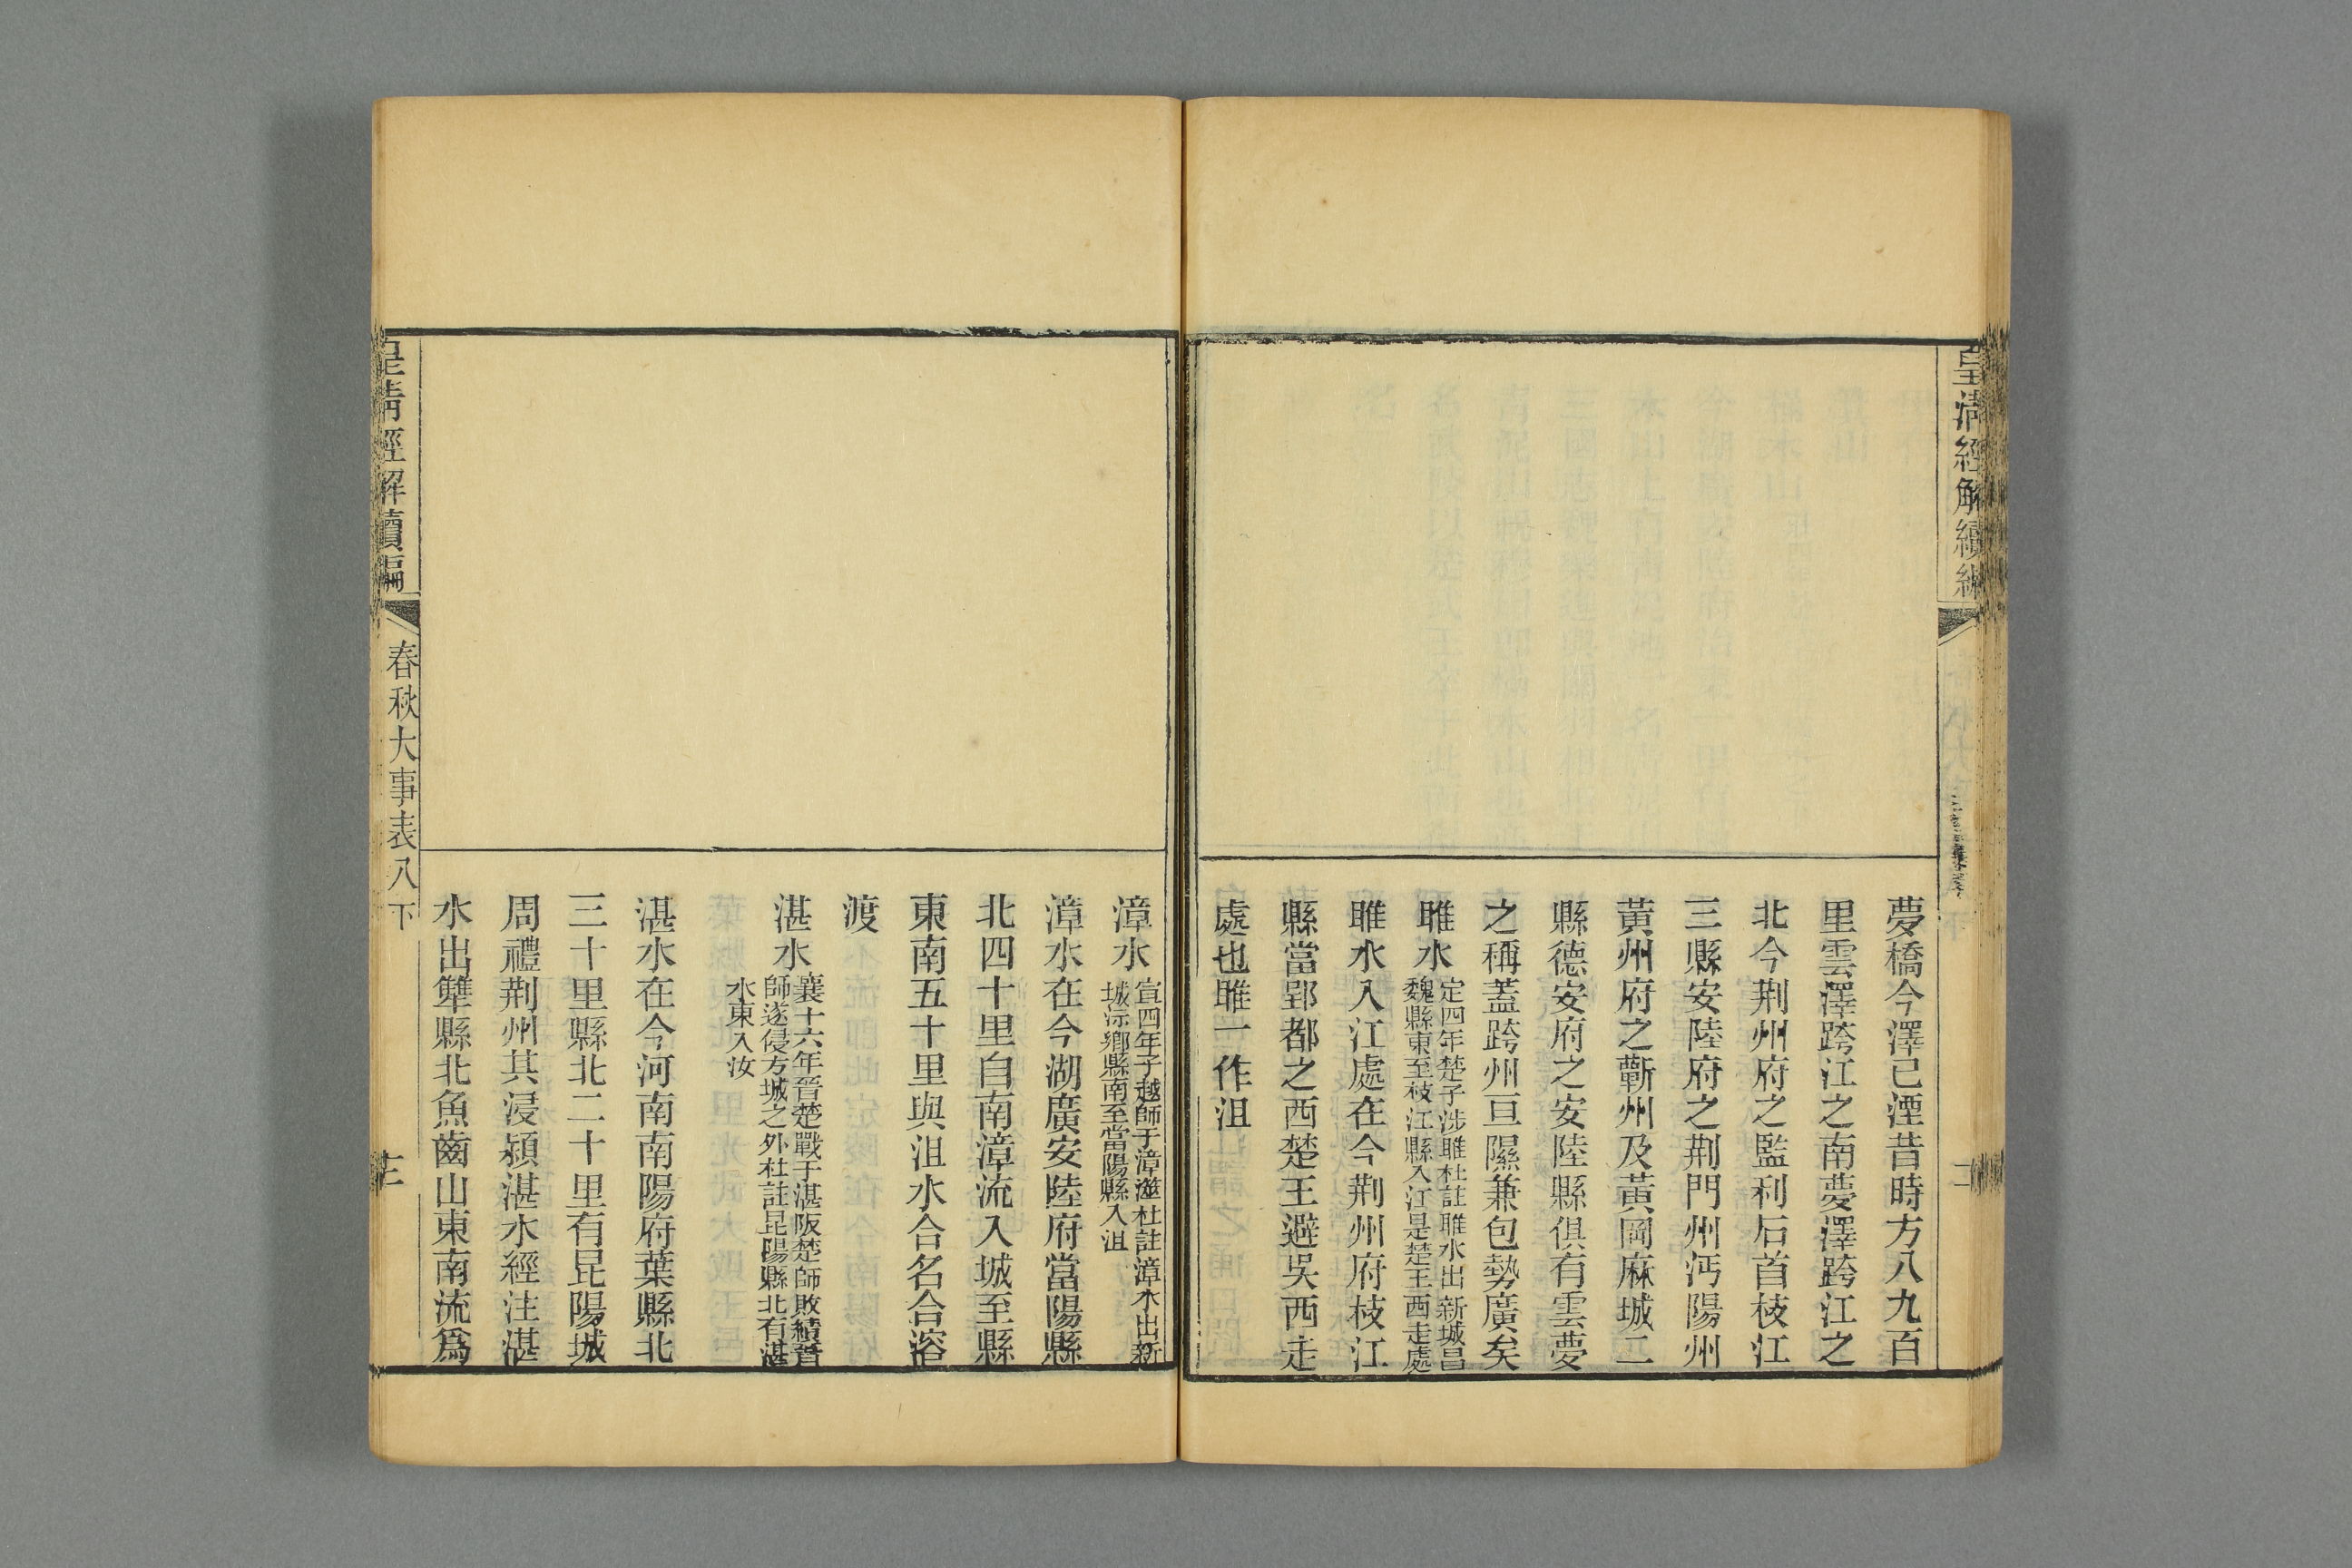 皇清經解續編
夢橋今澤已湮昔時方八九百
里雲澤跨江之南夢澤跨江之
北今荆州府之監利石首枝江
三縣安陸府之荆門州沔陽州
黃州府之蘄州及黃岡麻城二
縣德安府之安陸縣俱有雲夢
之稱蓋跨州亘隰兼包勢廣矣
雎水
定四年楚子涉雎杜註雎水出新城昌
魏縣東至枝江縣入江是楚王西走處
雎水入江處在今荆州府枝江
縣當郢都之西楚王避吳西走
處也雎一作沮
漳水
宣四年子越師于漳澨杜註漳水出新
城沶鄉縣南至當陽縣入沮
漳水在今湖廣安陸府當陽縣
北四十里自南漳流入城至縣
東南五十里與沮水合名合溶
渡
湛水
襄十六年晉楚戰于湛阪楚師敗績晉
師遂侵方城之外杜註昆陽縣北有湛
水東入汝
湛水在今河南南陽府葉縣北
三十里縣北二十里有昆陽城
周禮荆州其浸潁湛水經注湛
水出犨縣北魚齒山東南流爲
皇清經解續編
春秋大事表八下